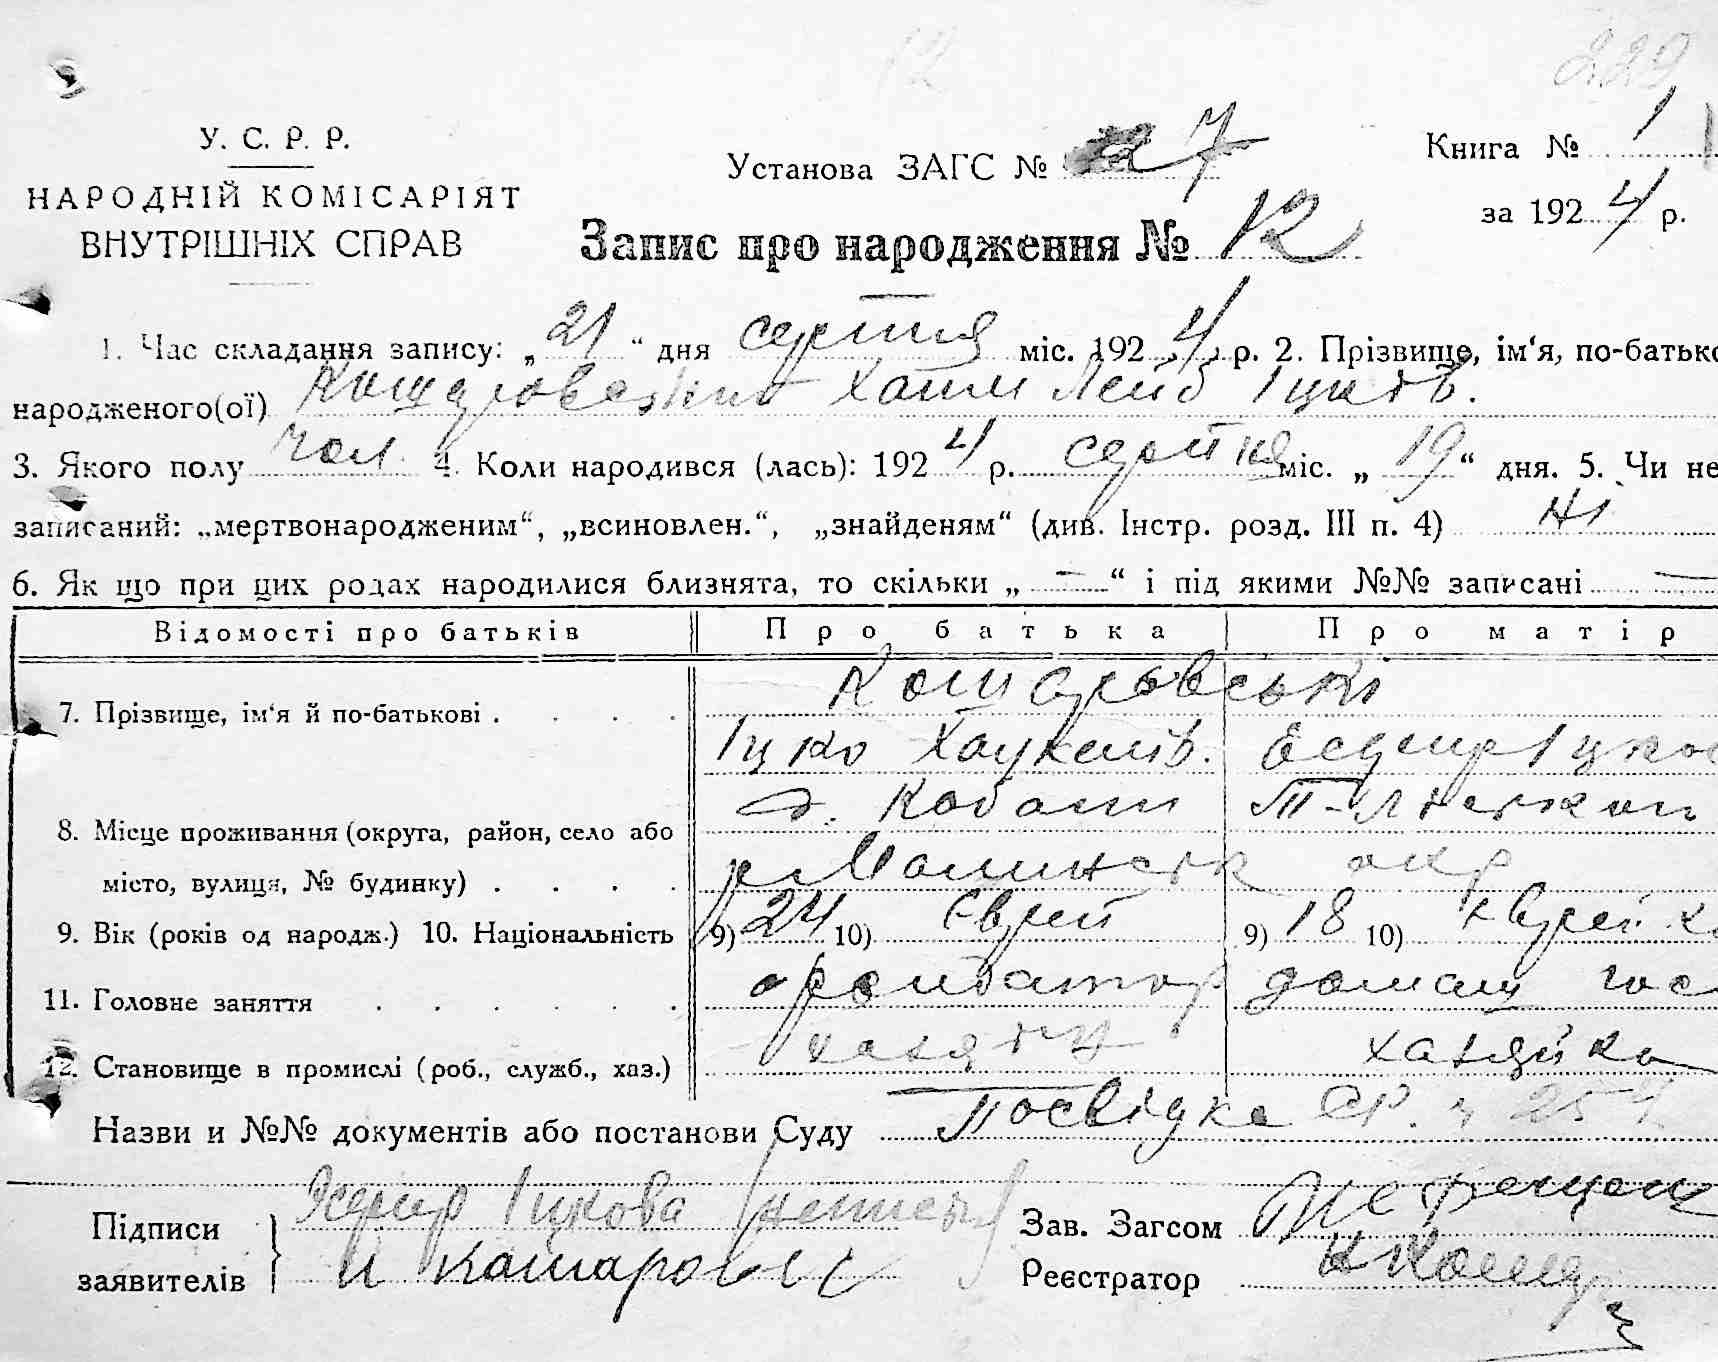 12
229
У. С. Р. Р.
НАРОДНІЙ КОМІСАРІЯТ
ВНУТРІШНІХ СПРАВ
Установа ЗАГС № 7
Книга № 1
за 1924 р.
Запис про народження № 12
1. Час складання запису: „21“ дня серпня міс. 1924 р. 2. Прізвище, ім‘я, по-батько
народженого(ої) Хаїм Лейб Іцков.
3. Якого полу чол. 4. Коли народився (лась): 1924 р. серпня міс. „19“ дня. 5. Чи не
записаний: „мертвонародженим“, „всиновлен.“, „знайденям“ (див. Інстр. розд. III п. 4) Ні
6. Як що при цих родах народилися близнята, то скільки „—“ і під якими №№ записані —
Відомості про батьків Про батька Про матір
7. Прізвище, ім‘я й по-батькові . . . . Кошаровські
Іцко
8. Місце проживання (округа, район, село або
місто, вулиця, № будинку) . . . . окр
9. Вік (років од народж.) 10. Національність 9) 24 10) Єврей 9) 18 10) Єврейка
11. Головне заняття . . . . . . орендатор домаш гос
12. Становище в промислі (роб., служб., хаз.) хазяїн хазяйка
Назви и №№ документів або постанови Суду Посвідка СР. 257
Підписи заявителів Іцкова
и Кошаровс
Зав. Загсом
Реєстратор